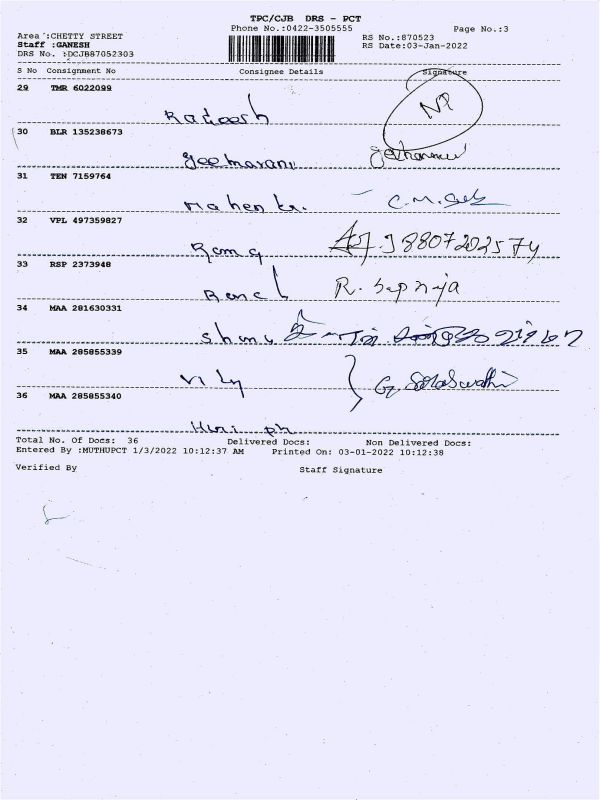 TPC/CJB DRS - PCT
Phone No.:0422-3505555 Page No.:3
Area :CHETTY STREET RS No.:870523
Staff :GANESH RS Date:03-Jan-2022
DRS No. :DCJB87052303
S No Consignment No Consignee Details Signature
29 TMR 6022099
Radeesh NP
30 BLR 135238673
geemarani
31 TEN 7159764
Mahenta. C.M.
32 VPL 497359827
Rama 8807202574
33 RSP 2373948
R. Sapnija
34 MAA 281630331
35 MAA 285855339
G. Saraswathi
36 MAA 285855340
Total No. Of Docs: 36 Delivered Docs: Non Delivered Docs:
Entered By :MUTHUPCT 1/3/2022 10:12:37 AM Printed On: 03-01-2022 10:12:38
Verified By Staff Signature